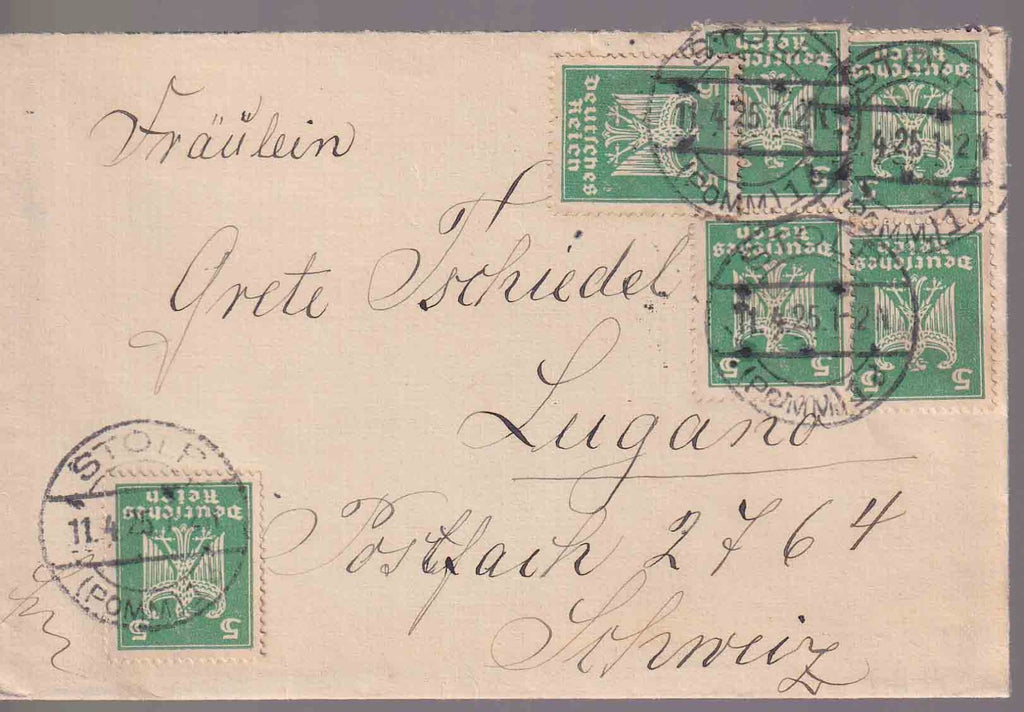 Fräulein
Grete Tschiedel
Lugano
Postfach 2764
Schweiz
Deutsches
Reich
5
Deutsches
Reich
5
Deutsches
Reich
5
Deutsches
Reich
5
5
Deutsches
Reich
5
5
Deutsches
Reich
5
5
STOLP
11.4.25.1-2N
(POMM)1
STOLP
11.4.25.1-2N
(POMM)1
STOLP
11.4.25.1-2N
(POMM)1
STOLP
11.4.25
(POMM)